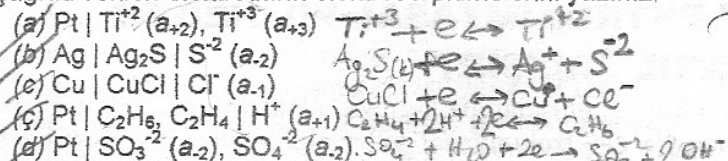 (a) Pt | Ti⁺² (a₊₂), Ti⁺³ (a₊₃) Ti⁺³ + e ↔ Ti⁺²
(b) Ag | Ag₂S | S⁻² (a₋₂) Ag₂S(k) + e ↔ Ag⁺ + S⁻²
(c) Cu | CuCl | Cl⁻ (a₋₁) CuCl + e ↔ Cu + Cl⁻
(ç) Pt | C₂H₆, C₂H₄ | H⁺ (a₊₁) C₂H₄ + 2H⁺ + 2e ↔ C₂H₆
(d) Pt | SO₃⁻² (a₋₂), SO₄⁻² (a₋₂). SO₄⁻² + H₂O + 2e → 2OH